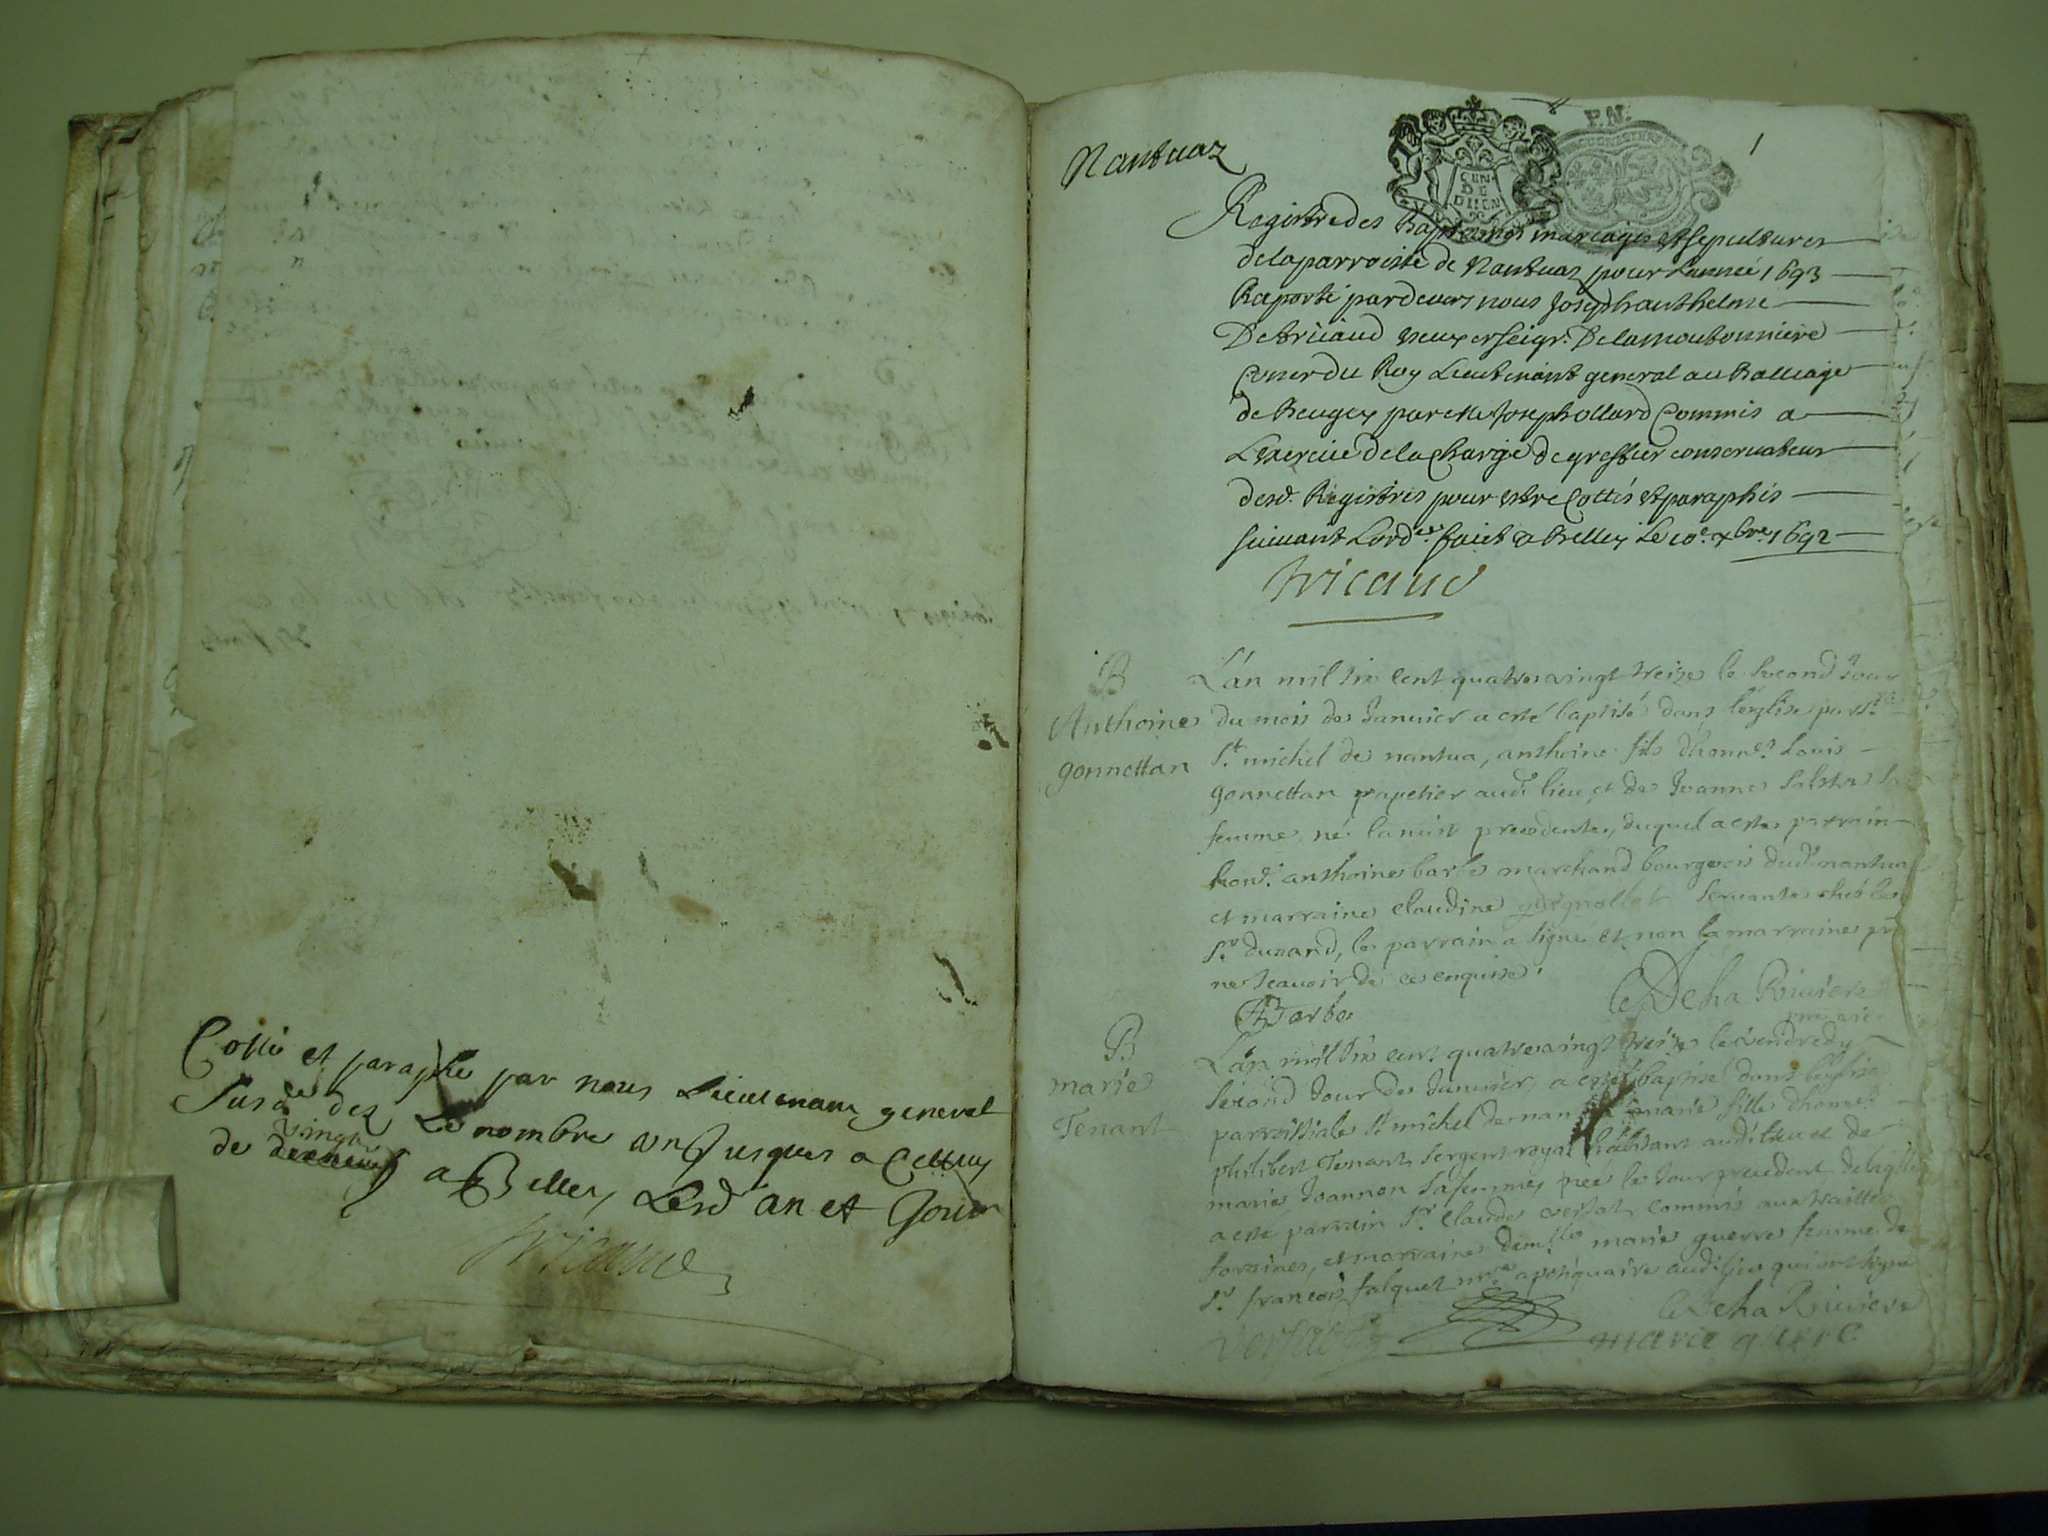 Cotté et paraphé par nous Lieutenant general
Le nombre un Jusques a Celluy
de vingt a Belley Lesd an et Jour
Tricaud
Nantuaz
P.N.
1
GEN
DE
DIION
Registre des Baptesmes mariages et sepultures
de la parroisse de Nantuaz pour Lannée 1693
Raporté pardevers nous Joseph anthelme
De tricaud seigr. De la moutonniere
Coner du Roy Lieutenant general au Balliage
de Beugey par me Joseph ollard Commis a
Lexercice de la Charge de greffier conservateur
desd. Registres pour estre Cottés et paraphés
suivant Lordce. faict a Belley Le 10e. xbre. 1692
Tricaud
B
Anthoine
gonnettan
L'an mil six cent quatre vingt treize le second Jour
du mois de Janvier a esté baptisé dans l'eglise parsle.
St. michel de nantua, anthoine fils d'honne. Louis
gonnettan papetier audt. lieu et de Jeanne
femme, né la nuit precedente, duquel a esté parrain
hone. anthoine barbe marchand bourgeois dudt. nantua
et marraine claudine servante chés le
Sr. durand, le parrain a signé et non la marraine pr
ne scavoir de ce enquise.
ABarbe
C Deha Riviere
B
marie
Tenant
L'an mil six cent quatre vingt treize le vendredy
second Jour de Janvier, a esté baptisé dans l'eglise
parroissiale St michel de nantua marie fille d'honne.
philibert Tenant sergent royal habitant audt. lieu et de
marie Joannon sa femme, née le Jour precedent, de laqlle
a esté parrain Sr. claude versat commis aux traittes
foraines, et marraine demlle. marie guerre femme de
Sr. francois falquet mre. apotiquaire audt. lieu qui ont signé
C Deha Riviere
Versat
marie guerre